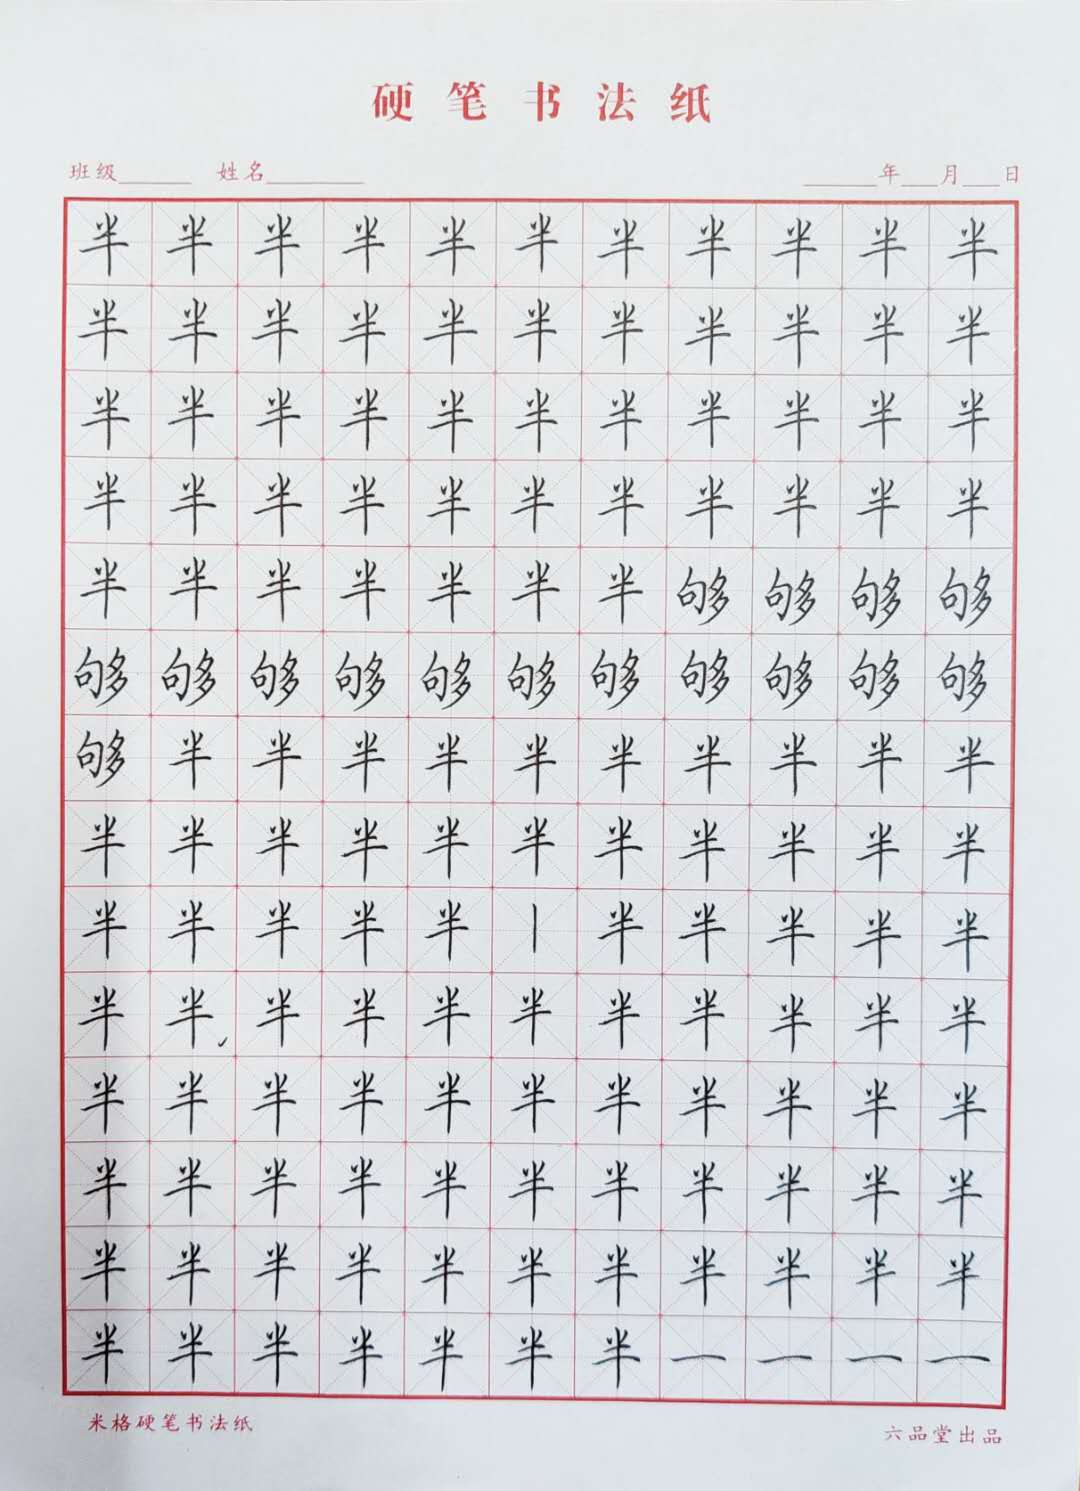 硬笔书法纸
班级______ 姓名________ ______年___月___日
半半半半半半半半半半半
半半半半半半半半半半半
半半半半半半半半半半半
半半半半半半半半半半半
半半半半半半半够够够够
够够够够够够够够够够够
够半半半半半半半半半半
半半半半半半半半半半半
半半半半半丨半半半半半
半半半半半半半半半半半
半半半半半半半半半半半
半半半半半半半半半半半
半半半半半半半半半半半
半半半半半半半一一一一
米格硬笔书法纸 六品堂出品